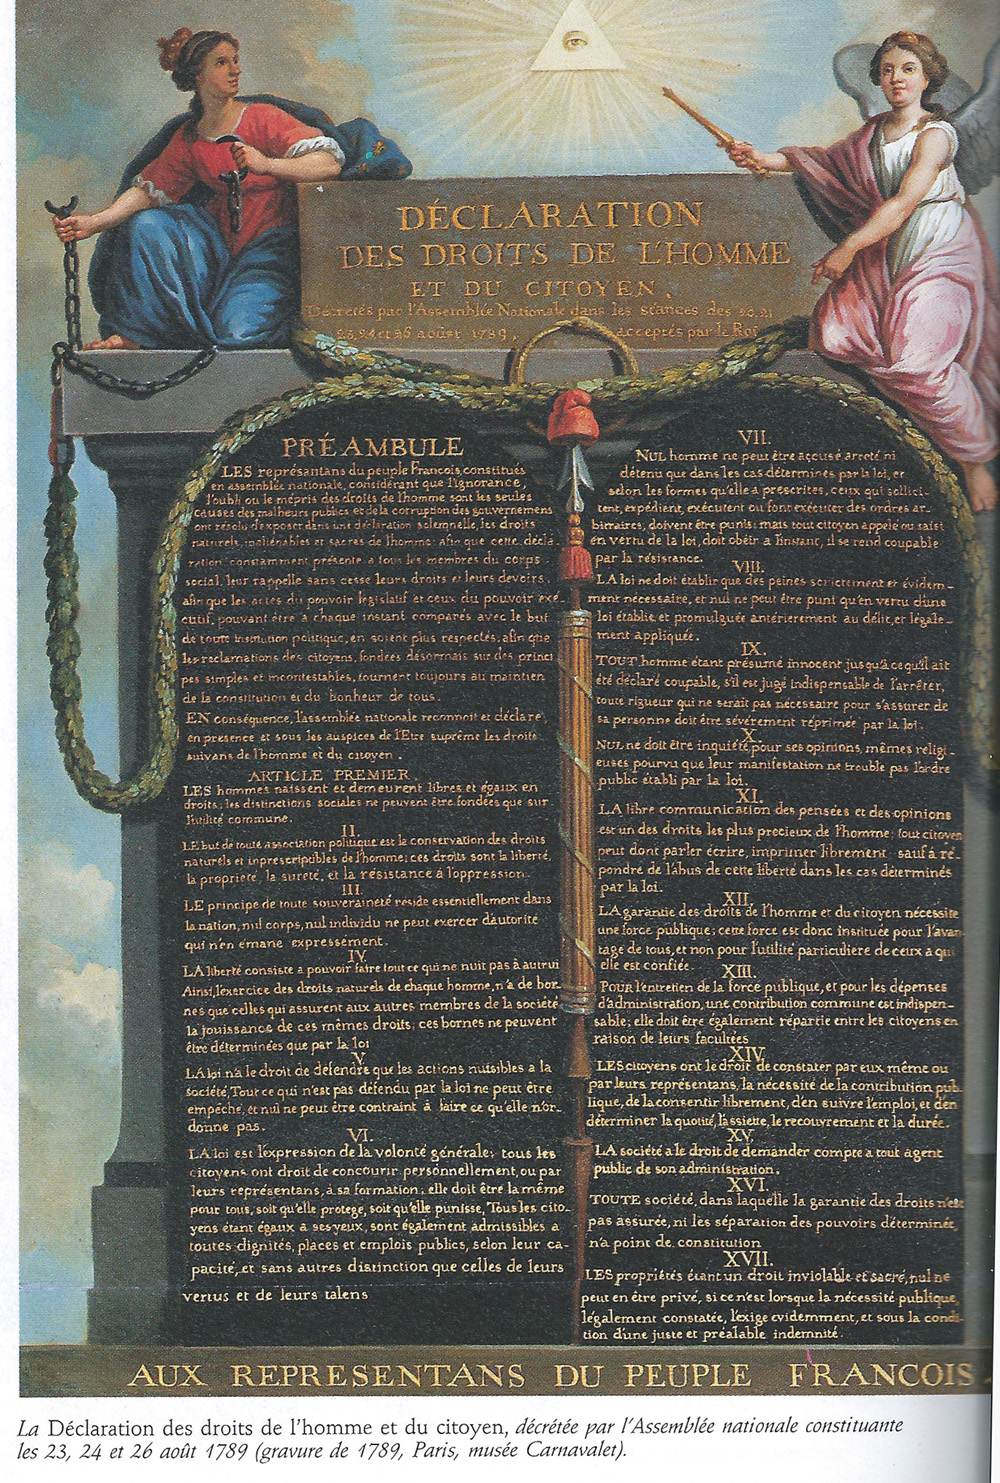 DÉCLARATION
DES DROITS DE L'HOMME
ET DU CITOYEN,
Décretés par l'Assemblée Nationale dans les séances des 20, 21
23, 24 et 26 aoûst 1789, acceptés par le Roi
PRÉAMBULE
LES représantans du peuple Francois, constitués
en assemblée nationale, considérant que l'ignorance,
l'oubli ou le mépris des droits de l'homme sont les seules
causes des malheurs publics et de la corruption des gouvernemens
ont résolu d'exposer dans une déclaration solemnelle, les droits
naturels, inaliénables et sacrés de l'homme; afin que cette décla-
ration, constamment présente a tous les membres du corps
social, leur rappelle sans cesse leurs droits et leurs devoirs,
afin que les actes du pouvoir législatif et ceux du pouvoir exé-
cutif, pouvant être a chaque instant comparés avec le but
de toute institution politique, en soient plus respectés; afin que
les reclamations des citoyens, fondées désormais sur des princi
pes simples et incontestables, tournent toujours au maintien
de la constitution et du bonheur de tous.
EN conséquence, l'assemblée nationale reconnoit et déclare,
en presence et sous les auspices de l'Etre suprême les droits
suivans de l'homme et du citoyen.
ARTICLE PREMIER.
LES hommes naissent et demeurent libres et égaux en
droits; les distinctions sociales ne peuvent être fondées que sur
l'utilité commune.
II.
LE but de toute association politique est la conservation des droits
naturels et inprescriptibles de l'homme; ces droits sont la liberté,
la propriete, la sureté, et la résistance à l'oppression.
III.
LE principe de toute souveraineté reside essentiellement dans
la nation, nul corps, nul individu ne peut exercer d'autorité
qui n'en émane expressement.
IV.
LA liberté consiste a pouvoir faire tout ce qui ne nuit pas à autrui
Ainsi, l'exercice des droits naturels de chaque homme, n'a de bor-
nes que celles qui assurent aux autres membres de la société
la jouissance de ces mêmes droits; ces bornes ne peuvent
être déterminées que par la loi
V.
LA loi n'a le droit de défendre que les actions nuisibles a la
société. Tout ce qui n'est pas défendu par la loi ne peut être
empêché, et nul ne peut être contraint à faire ce qu'elle n'or-
donne pas.
VI.
LA loi est l'expression de la volonté générale; tous les
citoyens ont droit de concourir personnellement, ou par
leurs représentans, à sa formation; elle doit être la même
pour tous, soit qu'elle protege, soit qu'elle punisse, Tous les cito-
yens étant égaux à ses yeux, sont également admissibles a
toutes dignités, places et emplois publics, selon leur ca-
pacité, et sans autres distinction que celles de leurs
vertus et de leurs talens
VII.
NUL homme ne peut être acçusé arreté ni
détenu que dans les cas déterminés par la loi, et
selon les formes qu'elle a prescrites, ceux qui sollici-
tent, expédient, exécutent ou font exécuter des ordres ar-
bitraires, doivent être punis; mais tout citoyen appelé ou saisi
en vertu de la loi, doit obéir a l'instant, il se rend coupable
par la résistance.
VIII.
LA loi ne doit établir que des peines strictement et évidem-
ment nécessaire, et nul ne peut être puni qu'en vertu d'une
loi établie et promulguée antérierement au délit, et légale-
ment appliquée.
IX.
TOUT homme étant présumé innocent jusqu'à ce qu'il ait
été déclaré coupable, s'il est jugé indispensable de l'arrêter,
toute rigueur qui ne serait pas nécessaire pour s'assurer de
sa personne doit être sévèrement réprimée par la loi.
X.
NUL ne doit être inquiété pour ses opinions, mêmes religi-
euses pourvu que leur manifestation ne trouble pas l'ordre
public établi par la loi.
XI.
LA libre communication des pensées et des opinions
est un des droits les plus precieux de l'homme; tout citoyen
peut dont parler écrire, imprimer librement sauf à ré-
pondre de l'abus de cette liberté dans les cas déterminés
par la loi.
XII.
LA garantie des droits de l'homme et du citoyen nécessite
une force publique; cette force est donc instituée pour l'avan-
tage de tous, et non pour l'utilité particuliere de ceux a qui
elle est confiée.
XIII.
POUR l'entretien de la force publique, et pour les dépenses
d'administration, une contribution commune est indispen-
sable; elle doit être également répartie entre les citoyens en
raison de leurs facultées
XIV.
LES citoyens ont le droit de constater par eux même ou
par leurs représentans, la nécessité de la contribution pub-
lique, de la consentir librement, d'en suivre l'emploi, et d'en
déterminer la quotité, l'assiette, le recouvrement et la durée.
XV.
LA société a le droit de demander compte a tout agent
public de son administration.
XVI.
TOUTE société, dans laquelle la garantie des droits n'est
pas assurée, ni les séparation des pouvoirs déterminée,
n'a point de constitution
XVII.
LES propriétés étant un droit inviolable et sacré, nul ne
peut en être privé, si ce n'est lorsque la nécessité publique,
légalement constatée, l'exige evidemment, et sous la condi-
tion d'une juste et préalable indemnité.
AUX REPRESENTANS DU PEUPLE FRANCOIS
La Déclaration des droits de l'homme et du citoyen, décrétée par l'Assemblée nationale constituante
les 23, 24 et 26 août 1789 (gravure de 1789, Paris, musée Carnavalet).